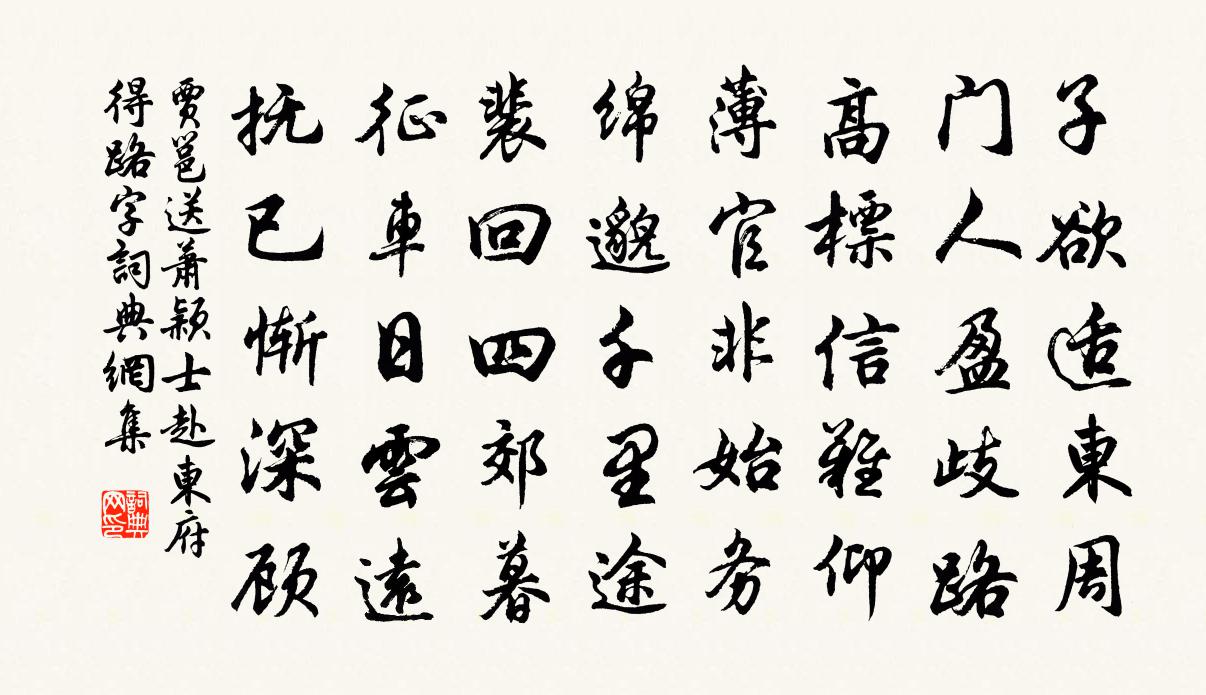 子欲适東周
门人盈歧路
高標信難仰
薄官非始务
绵邈千里途
裴回四郊暮
征車日雲遠
抚已慚深顾
賈邕送蕭颖士赴東府
得路字詞典網集
詞典网印